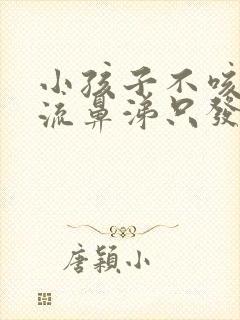 小孩子不咳
流鼻涕只發
唐穎小